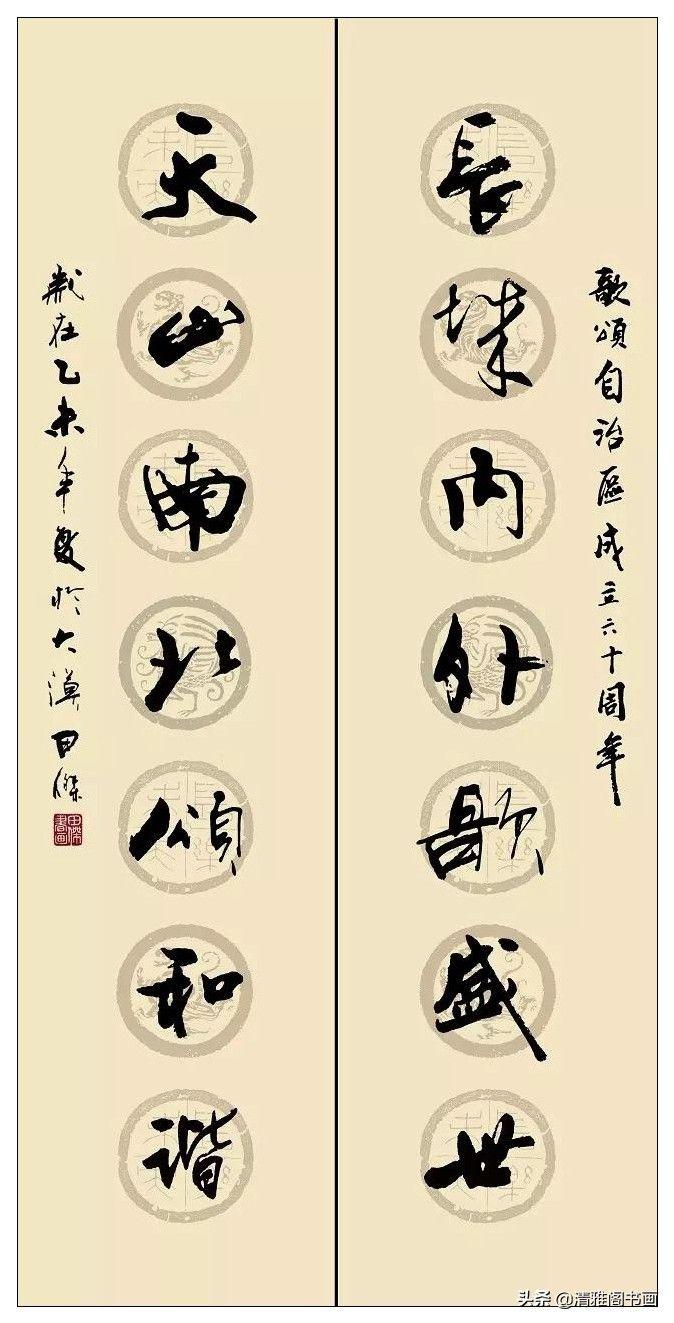 歌頌自治區成立六十周年
長城内外歌盛世
天山南北頌和谐
歲在乙未年夏於大漠田傑
田傑書画
头条 @清雅阁书画